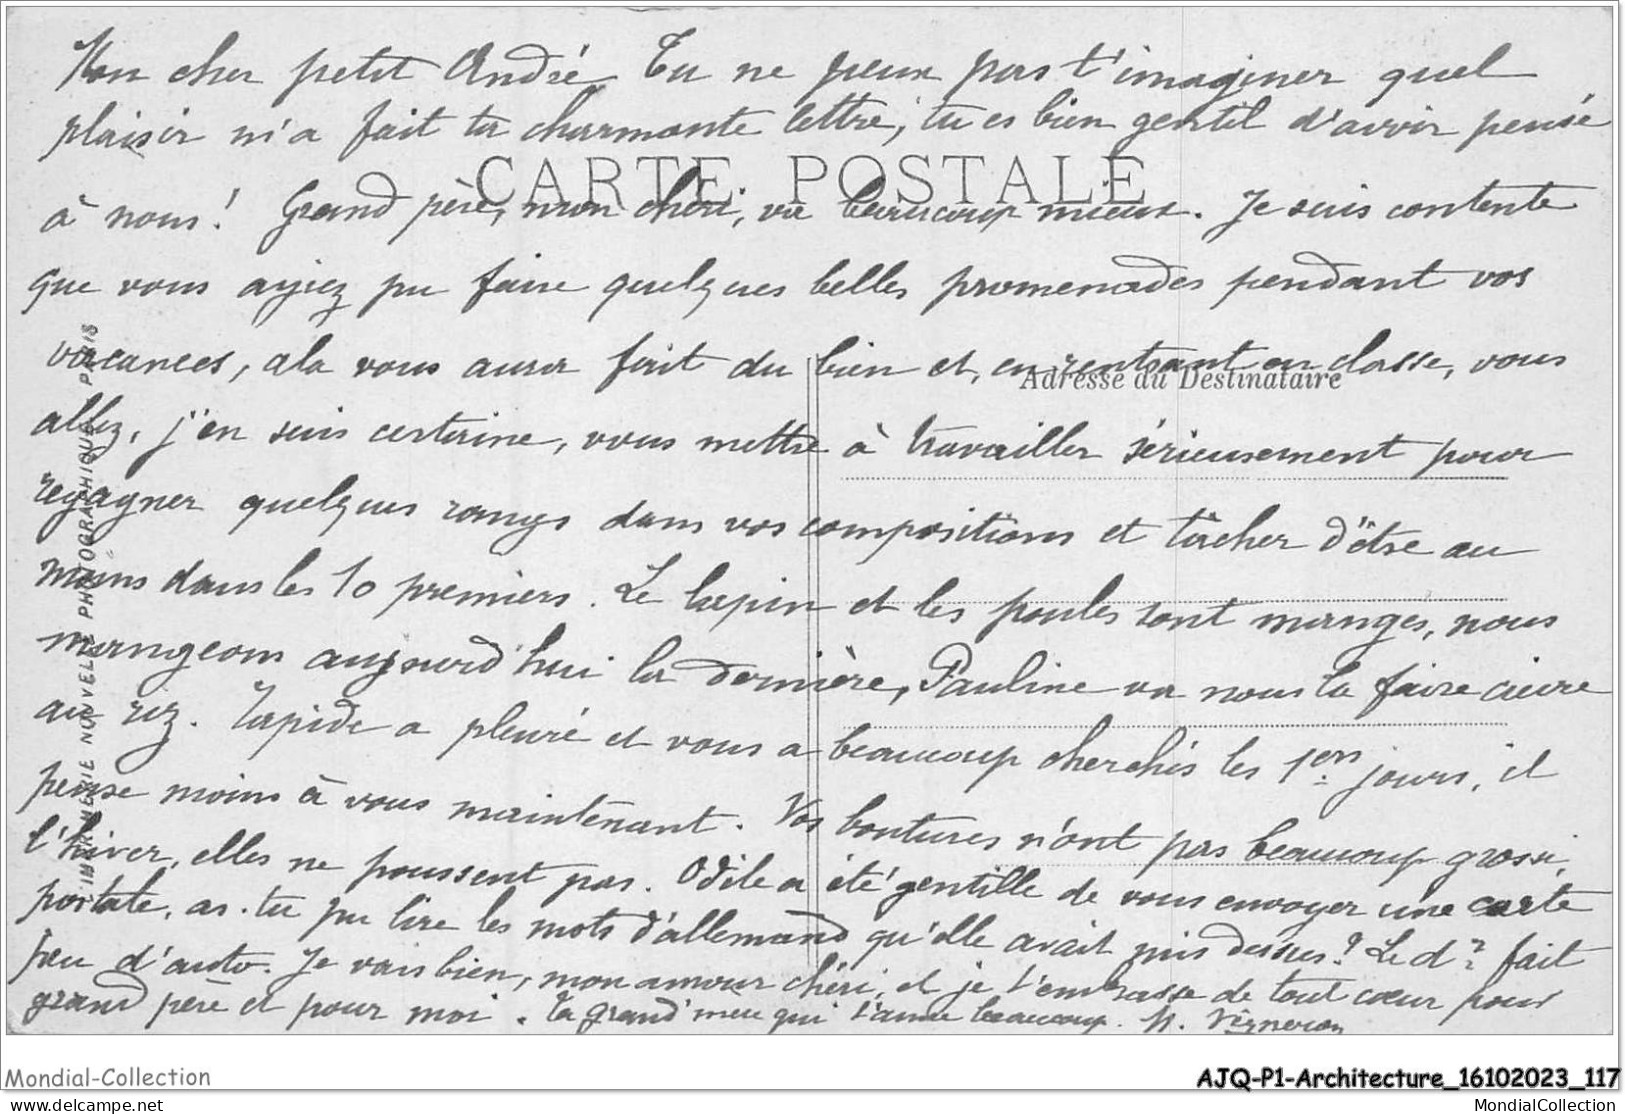 Mon cher petit André Tu ne peux pas t'imaginer quel
plaisir m'a fait ta charmante lettre, tu es bien gentil d'avoir pensé
CARTE POSTALE
à nous! Grand père, mon chéri, va beaucoup mieux. Je suis contente
que vous ayiez pu faire quelques belles promenades pendant vos
vacances, ala vous aura fait du bien et, en rentrant en classe, vous
Adresse du Destinataire
allez, j'en suis certaine, vous mettre à travailler sérieusement pour
regagner quelques rangs dans vos compositions et tâcher d'être au
moins dans les 10 premiers. Le lapin et les poules sont mangés, nous
mangeons aujourd'hui la dernière, Pauline va nous la faire cuire
au riz. Rapide a pleuré et vous a beaucoup cherchés les 1ers jours, il
pense moins à vous maintenant. Vos boutures n'ont pas beaucoup grossi,
l'hiver, elles ne poussent pas. Odile a été gentille de vous envoyer une carte
postale, as-tu pu lire les mots d'allemand qu'elle avait mis dessus? Le dr fait
peu d'auto. Je vais bien, mon amour chéri, et je t'embrasse de tout cœur pour
grand père et pour moi. Ta grand'mère qui t'aime beaucoup. M.
IMPRIMERIE NOUVELLE PHOTOGRAPHIQUE PARIS
Mondial-Collection
AJQ-P1-Architecture_16102023_117
www.delcampe.net
MondialCollection